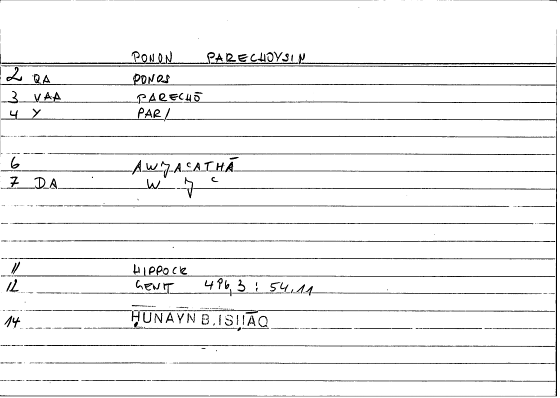 PONON PARECHOYSIN
2 QA PONOS
3 VAA PARECHŌ
4 Y PAR/
6 AWJACATHĀ
7 DA W J C
11 HIPPOCR
12 GENIT 496,3 : 54.11
14 ḤUNAYN B.ISḤĀQ